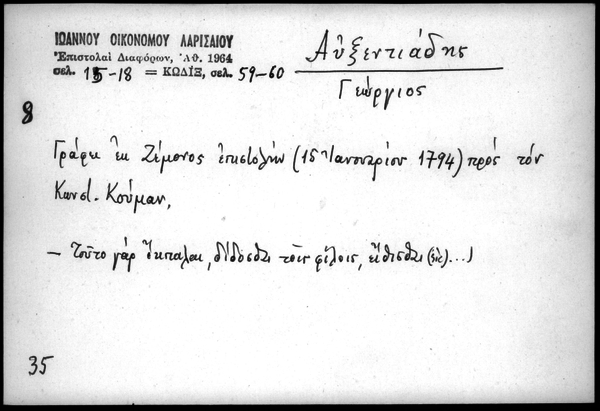 ΙΩΑΝΝΟΥ ΟΙΚΟΝΟΜΟΥ ΛΑΡΙΣΑΙΟΥ
Ἐπιστολαὶ Διαφόρων, Ἀθ. 1964
σελ. 15-18 = ΚΩΔΙΞ, σελ. 59-60
Αὐξεντιάδης
Γεώργιος
8
Γράφει ἐκ Ζέμονος ἐπιστολὴν (15 Ἰανουαρίου 1794) πρὸς τόν
Κωνστ. Κούμαν,
— Τοῦτο γάρ ἔκπαλαι, δίδοσθαι τοῖς φίλοις, εἴθισθαι (sic)...)
35